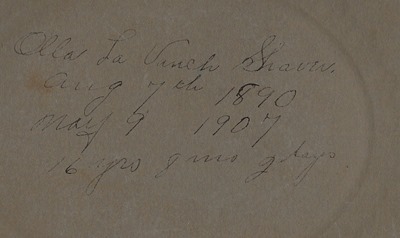 Olla La Vinch Shaver.
Aug 7th 1890
May 9 1907
16 yrs 9 mo 2 days.